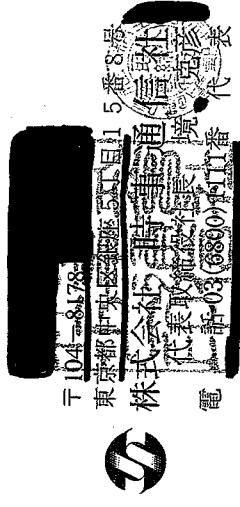 〒104-8178
東京都中央区銀座5丁目15番8号
株式会社 時事通信社
代表取締役社長 境 克彦
電話 03(6800)1111番 代表